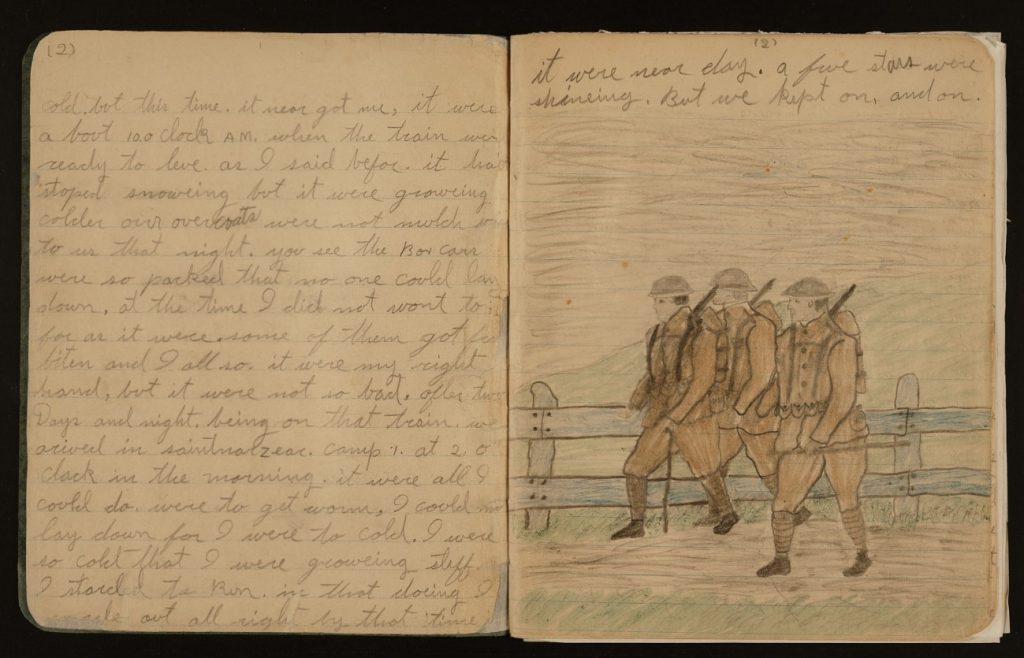 (2)
cold. but this time. it near got me, it were
a bout 10.0 clock AM. when the train wer
ready to leve. as I said befor. it had
stoped snoweing but it were groweing
colder our overcoats were not mutch
to us that night. you see the Box cars
were so packed that no one could lay
down, at the time I did not wont to
for as it were. some of them got
biten and I all so. it were my right
hand, but it were not so bad. after two
Days and night. being on that train. we
arived in saintnatzear. camp 1. at 2 O
clock in the morning. it were all I
could do. were to get worm, I could
lay down for I were to cold. I were
so cold that I were groweing steff.
I started to Run. in that doieng I
out all right by that time
(2)
it were near day. a fwe stars were
shineing. But we kept on, and on.